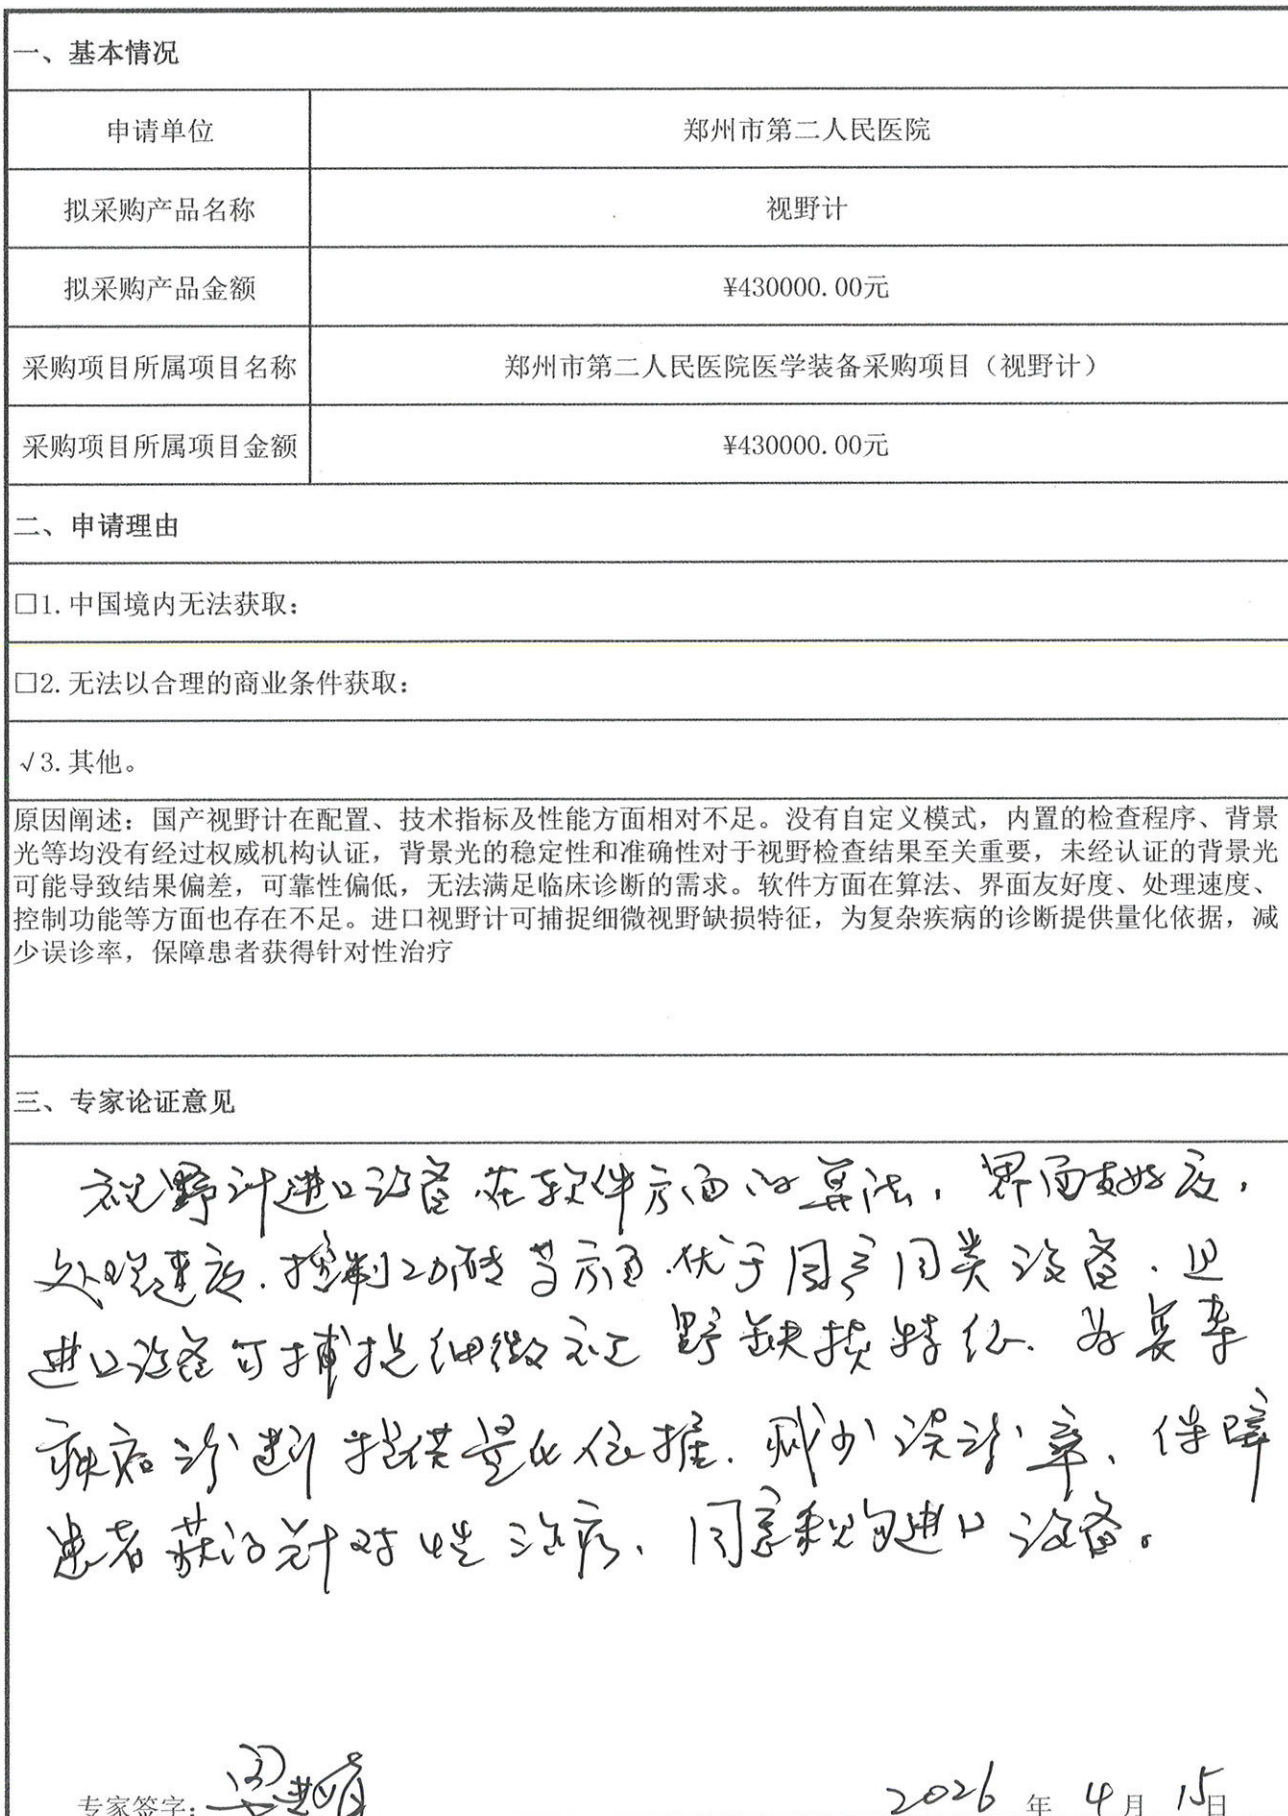 一、基本情况
申请单位 郑州市第二人民医院
拟采购产品名称 视野计
拟采购产品金额 ¥430000.00元
采购项目所属项目名称 郑州市第二人民医院医学装备采购项目（视野计）
采购项目所属项目金额 ¥430000.00元
二、申请理由
□1.中国境内无法获取：
□2.无法以合理的商业条件获取：
√3.其他。
原因阐述：国产视野计在配置、技术指标及性能方面相对不足。没有自定义模式，内置的检查程序、背景
光等均没有经过权威机构认证，背景光的稳定性和准确性对于视野检查结果至关重要，未经认证的背景光
可能导致结果偏差，可靠性偏低，无法满足临床诊断的需求。软件方面在算法、界面友好度、处理速度、
控制功能等方面也存在不足。进口视野计可捕捉细微视野缺损特征，为复杂疾病的诊断提供量化依据，减
少误诊率，保障患者获得针对性治疗
三、专家论证意见
视野计进口设备在软件方面的算法，界面友好度，
处理速度、控制功能等方面优于国产同类设备，且
进口设备可捕捉细微视野缺损特征、为复杂
疾病诊断提供量化依据、减少误诊率、保障
患者获得针对性治疗、同意采购进口设备。
专家签字：
2026 年 4 月 15 日